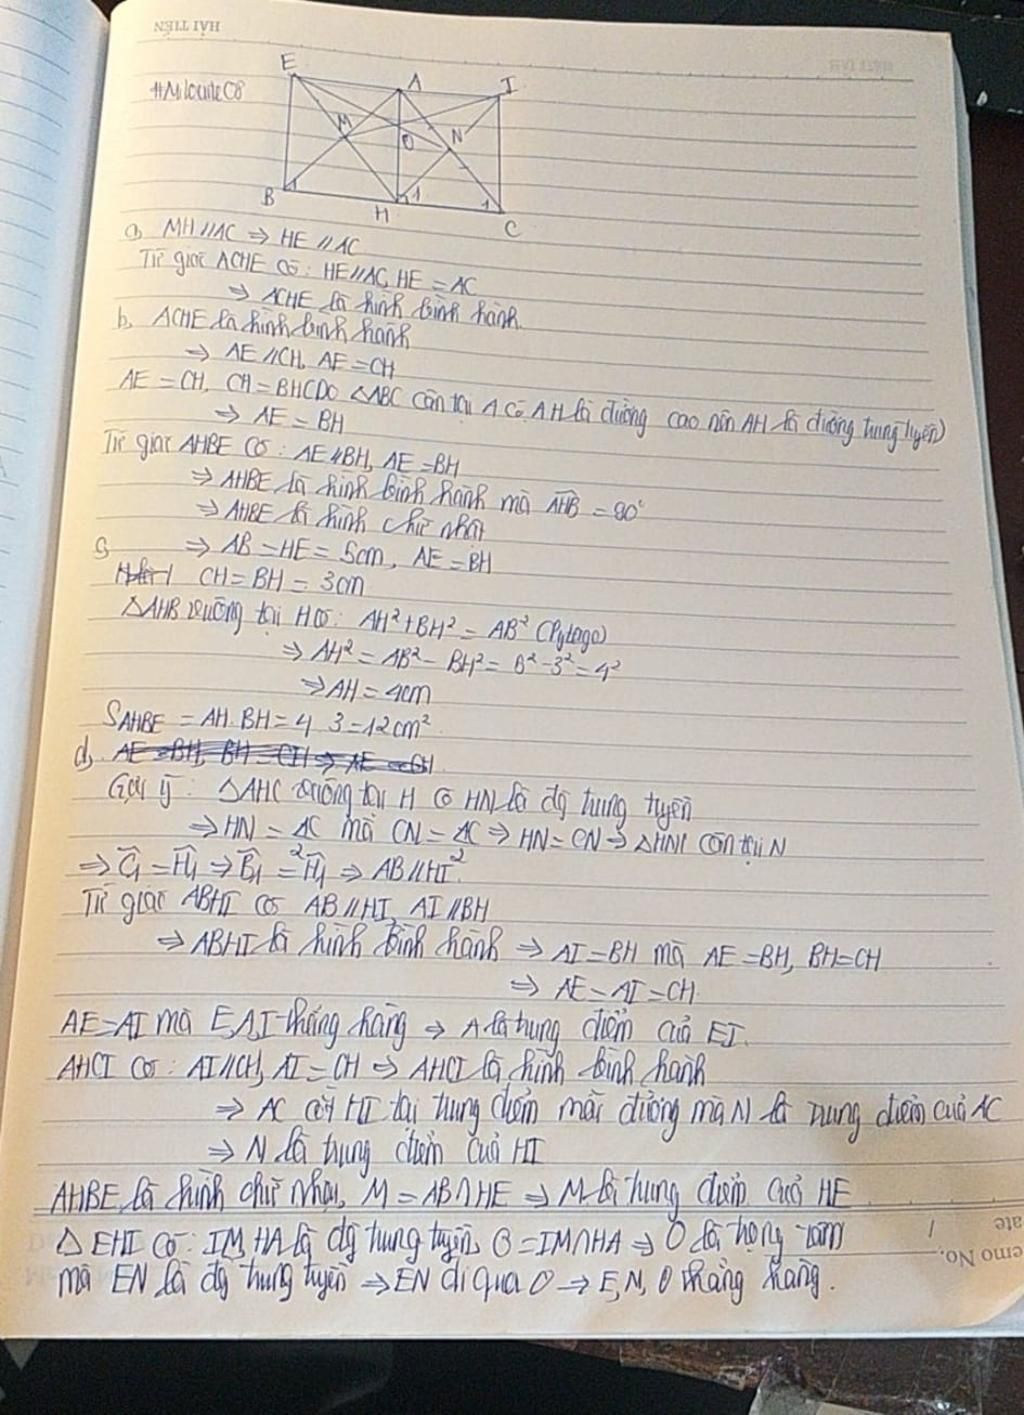 HẢI TIẾN
E
A
I
#Milouite08
M
O
N
B
1
H
1
1
C
a) MH//AC ⇒ HE//AC
Tứ giác ACHE có: HE//AC, HE = AC
⇒ ACHE là hình bình hành.
b, ACHE là hình bình hành
⇒ AE//CH, AE = CH
AE = CH, CH = BH(DO △ABC cân tại A có AH là đường cao nên AH là đường trung tuyến)
⇒ AE = BH
Tứ giác AHBE có: AE//BH, AE = BH
⇒ AHBE là hình bình hành mà AHB = 90°
⇒ AHBE là hình chữ nhật
c, ⇒ AB = HE = 5cm, AE = BH
CH = BH = 3cm
△AHB vuông tại H có: AH² + BH² = AB² (Pytago)
⇒ AH² = AB² - BH² = 5² - 3² = 4²
⇒ AH = 4cm
SAHBE = AH.BH = 4.3 = 12cm²
d, AE = BH, BH = CH ⇒ AE = CH
Gợi ý: △AHC vuông tại H có HN là đg trung tuyến
⇒ HN = AC/2 mà CN = AC/2 ⇒ HN = CN ⇒ △HNC cân tại N
⇒ C1 = H1 ⇒ B1 = H1 ⇒ AB//HI
Tứ giác ABHI có AB//HI, AI//BH
⇒ ABHI là hình bình hành ⇒ AI = BH mà AE = BH, BH = CH
⇒ AE = AI = CH
AE = AI mà E,A,I thẳng hàng ⇒ A là trung điểm của EI.
AHCI có: AI//CH, AI = CH ⇒ AHCI là hình bình hành
⇒ AC cắt HI tại trung điểm mỗi đường mà N là trung điểm của AC
⇒ N là trung điểm của HI
AHBE là hình chữ nhật, M = AB∩HE ⇒ M là trung điểm của HE
△EHI có: IM, HA là đg trung tuyến, O = IM∩HA ⇒ O là trọng tâm
mà EN là đg trung tuyến ⇒ EN đi qua O ⇒ E, N, O thẳng hàng.
ate /
emo No.